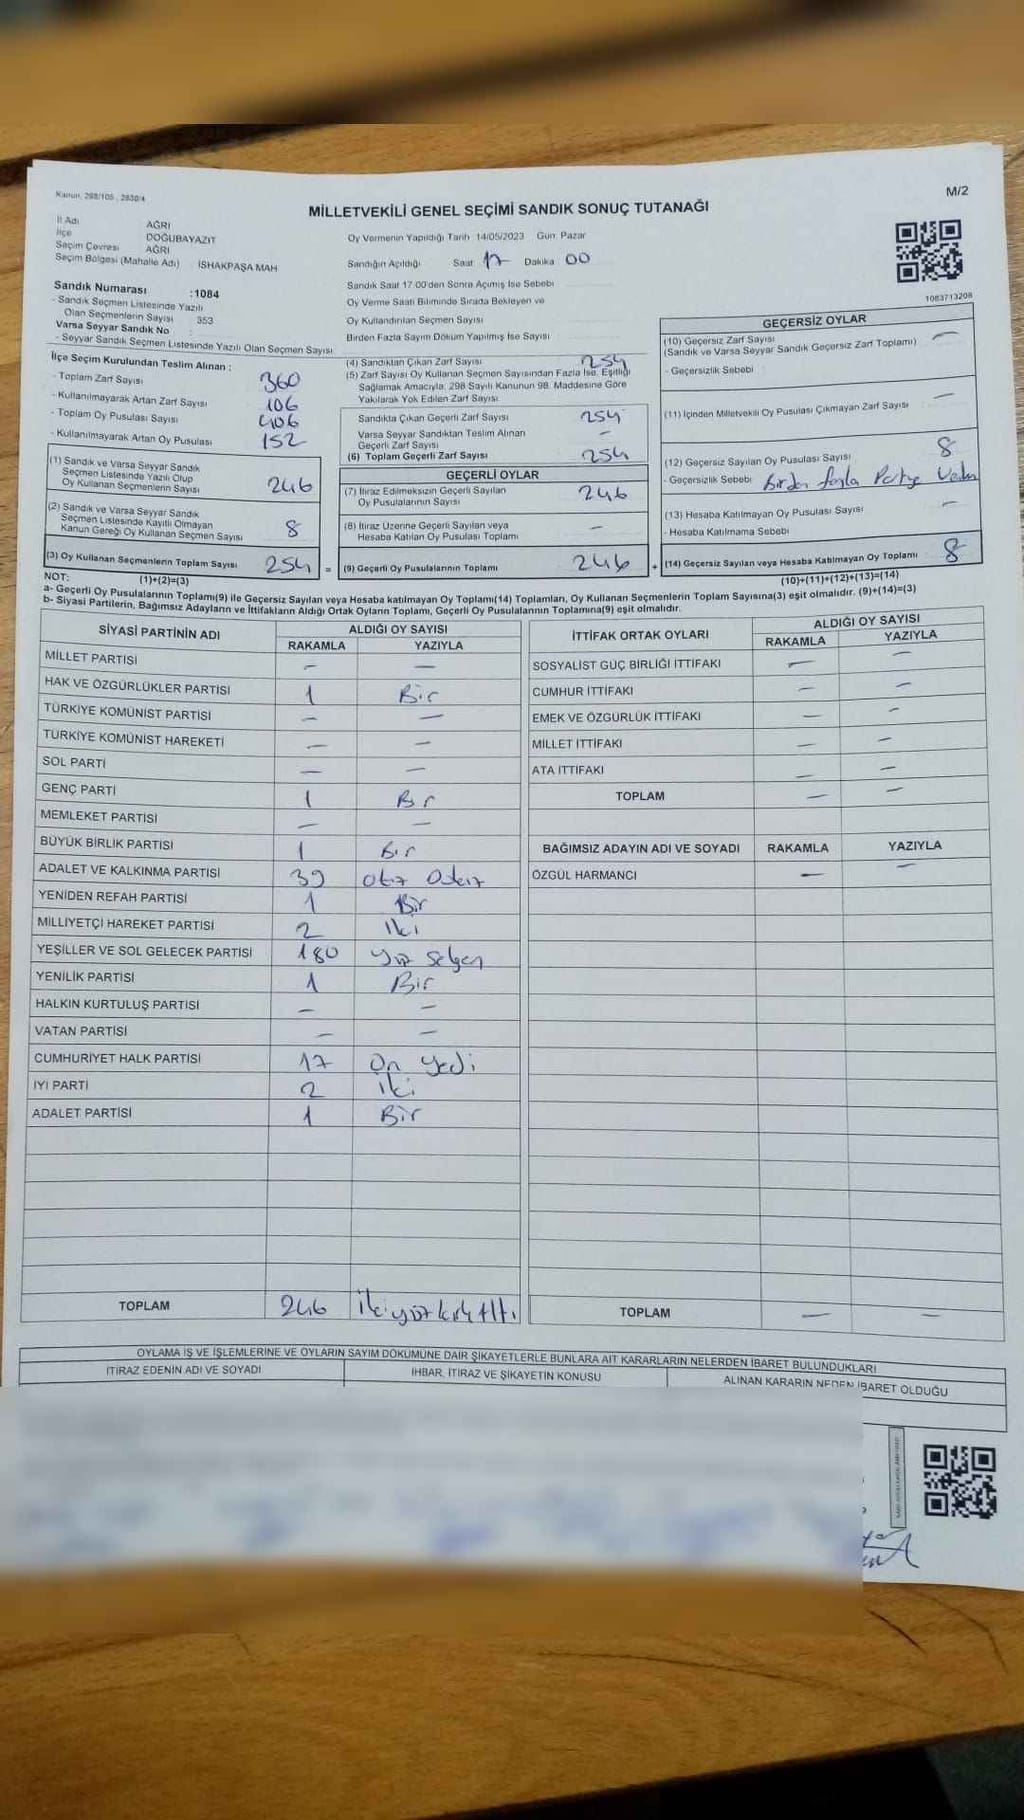 Kanun: 298/105 , 2839/4
M/2
MİLLETVEKİLİ GENEL SEÇİMİ SANDIK SONUÇ TUTANAĞI
İl Adı AĞRI
İlçe DOĞUBAYAZIT
Seçim Çevresi AĞRI
Seçim Bölgesi (Mahalle Adı) : İSHAKPAŞA MAH
Oy Vermenin Yapıldığı Tarih 14/05/2023 Gün: Pazar
Sandığın Açıldığı Saat: 17 Dakika 00
Sandık Saat 17.00'den Sonra Açılmış İse Sebebi
Oy Verme Saati Bitiminde Sırada Bekleyen ve
Oy Kullandırılan Seçmen Sayısı
Birden Fazla Sayım Döküm Yapılmış İse Sayısı
1083713208
Sandık Numarası :1084
- Sandık Seçmen Listesinde Yazılı
Olan Seçmenlerin Sayısı : 353
Varsa Seyyar Sandık No
- Seyyar Sandık Seçmen Listesinde Yazılı Olan Seçmen Sayısı
İlçe Seçim Kurulundan Teslim Alınan :
- Toplam Zarf Sayısı 360
- Kullanılmayarak Artan Zarf Sayısı 106
- Toplam Oy Pusulası Sayısı 406
- Kullanılmayarak Artan Oy Pusulası 152
(1) Sandık ve Varsa Seyyar Sandık
Seçmen Listesinde Yazılı Olup
Oy Kullanan Seçmenlerin Sayısı 246
(2) Sandık ve Varsa Seyyar Sandık
Seçmen Listesinde Kayıtlı Olmayan
Kanun Gereği Oy Kullanan Seçmen Sayısı 8
(3) Oy Kullanan Seçmenlerin Toplam Sayısı 254 =
(1)+(2)=(3)
(4) Sandıktan Çıkan Zarf Sayısı 254
(5) Zarf Sayısı Oy Kullanan Seçmen Sayısından Fazla İse, Eşitliği
Sağlamak Amacıyla; 298 Sayılı Kanunun 98. Maddesine Göre
Yakılarak Yok Edilen Zarf Sayısı
Sandıkta Çıkan Geçerli Zarf Sayısı 254
Varsa Seyyar Sandıktan Teslim Alınan
Geçerli Zarf Sayısı –
(6) Toplam Geçerli Zarf Sayısı 254
GEÇERLİ OYLAR
(7) İtiraz Edilmeksizin Geçerli Sayılan
Oy Pusulalarının Sayısı 246
(8) İtiraz Üzerine Geçerli Sayılan veya
Hesaba Katılan Oy Pusulası Toplamı –
(9) Geçerli Oy Pusulalarının Toplamı 246 +
GEÇERSİZ OYLAR
(10) Geçersiz Zarf Sayısı
(Sandık ve Varsa Seyyar Sandık Geçersiz Zarf Toplamı) –
- Geçersizlik Sebebi
(11) İçinden Milletvekili Oy Pusulası Çıkmayan Zarf Sayısı –
(12) Geçersiz Sayılan Oy Pusulası Sayısı 8
- Geçersizlik Sebebi Birden fazla Partiye
(13) Hesaba Katılmayan Oy Pusulası Sayısı –
- Hesaba Katılmama Sebebi
(14) Geçersiz Sayılan veya Hesaba Katılmayan Oy Toplamı 8
(10)+(11)+(12)+(13)=(14)
NOT:
a- Geçerli Oy Pusulalarının Toplamı(9) ile Geçersiz Sayılan veya Hesaba katılmayan Oy Toplamı(14) Toplamları, Oy Kullanan Seçmenlerin Toplam Sayısına(3) eşit olmalıdır. (9)+(14)=(3)
b- Siyasi Partilerin, Bağımsız Adayların ve İttifakların Aldığı Ortak Oyların Toplamı, Geçerli Oy Pusulalarının Toplamına(9) eşit olmalıdır.
SİYASİ PARTİNİN ADI ALDIĞI OY SAYISI
RAKAMLA YAZIYLA
MİLLET PARTİSİ – –
HAK VE ÖZGÜRLÜKLER PARTİSİ 1 Bir
TÜRKİYE KOMÜNİST PARTİSİ – –
TÜRKİYE KOMÜNİST HAREKETİ – –
SOL PARTİ – –
GENÇ PARTİ 1 Bir
MEMLEKET PARTİSİ – –
BÜYÜK BİRLİK PARTİSİ 1 Bir
ADALET VE KALKINMA PARTİSİ 39 otuz
YENİDEN REFAH PARTİSİ 1 Bir
MİLLİYETÇİ HAREKET PARTİSİ 2 iki
YEŞİLLER VE SOL GELECEK PARTİSİ 180 yüz seksen
YENİLİK PARTİSİ 1 Bir
HALKIN KURTULUŞ PARTİSİ – –
VATAN PARTİSİ – –
CUMHURİYET HALK PARTİSİ 17 On yedi
İYİ PARTİ 2 iki
ADALET PARTİSİ 1 Bir
TOPLAM 246 ikiyüz kırk Altı
İTTİFAK ORTAK OYLARI ALDIĞI OY SAYISI
RAKAMLA YAZIYLA
SOSYALİST GÜÇ BİRLİĞİ İTTİFAKI – –
CUMHUR İTTİFAKI – –
EMEK VE ÖZGÜRLÜK İTTİFAKI – –
MİLLET İTTİFAKI – –
ATA İTTİFAKI – –
TOPLAM – –
BAĞIMSIZ ADAYIN ADI VE SOYADI RAKAMLA YAZIYLA
ÖZGÜL HARMANCI – –
TOPLAM – –
OYLAMA İŞ VE İŞLEMLERİNE VE OYLARIN SAYIM DÖKÜMÜNE DAİR ŞİKAYETLERLE BUNLARA AİT KARARLARIN NELERDEN İBARET BULUNDUKLARI
İTİRAZ EDENİN ADI VE SOYADI İHBAR, İTİRAZ VE ŞİKAYETİN KONUSU ALINAN KARARIN NEDEN İBARET OLDUĞU